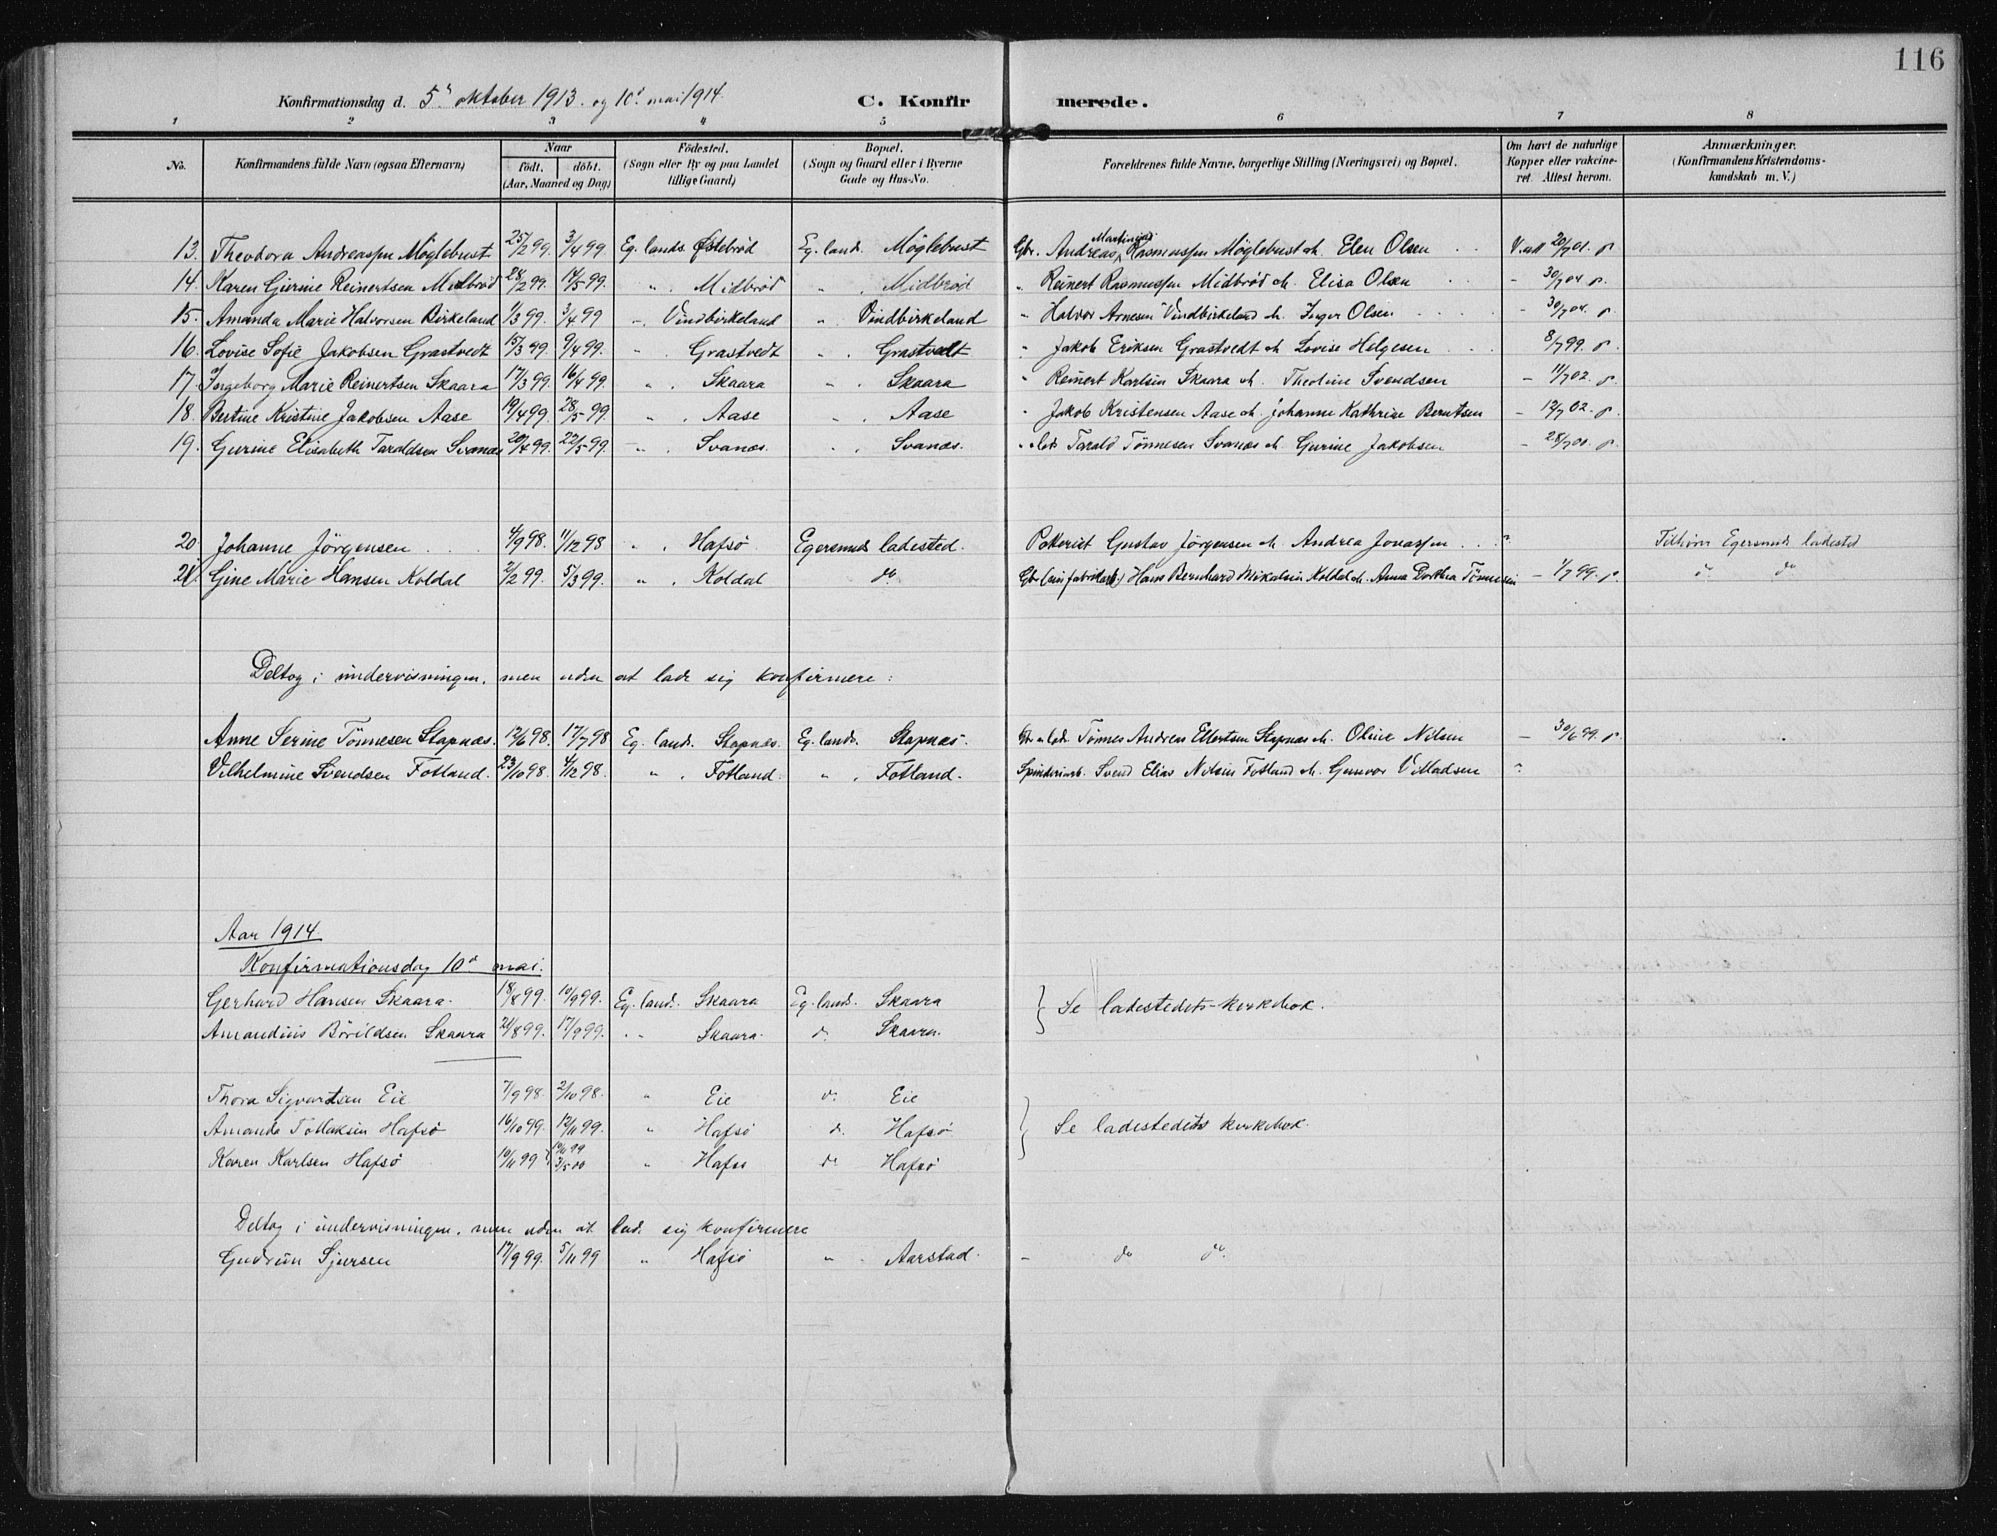 116
Konfirmationsdag d. 5' oktober 1913. og 10' mai 1914. C. Konfirmerede.
1 2 3 4 5 6 7 8
No. Konfirmandens fulde Navn (ogsaa Efternavn) Naar födt. döbt. (Aar, Maaned og Dag) Födested. (Sogn eller By og paa Landet tillige Gaard) Bopæl. (Sogn og Gaard eller i Byerne Gade og Hus-No. Forældrenes fulde Navne, borgerlige Stilling (Næringsvei) og Bopæl. Om havt de naturlige Kopper eller vakcineret. Attest herom. Anmærkninger. (Konfirmandens Kristendomskundskab m. V.)
13. Theodora Andreassen Möglebust 25/2 99. 3/4 99 Eg. lands. Østebrød Eg. lands. Möglebust Gbr. Andreas Martinius Rasmussen Möglebust & Elen Olsen V. att 20/7 01.
14. Karen Gurine Reinertsen Midbrød 28/2 99. 14/5 99. " . Midbrød " . Midbrød " Reinert Rasmussen Midbrød & Elisa Olsen - 30/7 04
15. Amanda Marie Halvorsen Birkeland 1/3 99. 3/4 99 " . Vindbirkeland " . Vindbirkeland " Halvor Arnesen Vindbirkeland & Inger Olsen - 30/7 04.
16. Lovise Sofie Jakobsen Grastvedt 15/3 99. 9/4 99. " . Grastvedt " . Grastvedt " Jakob Eriksen Grastvedt & Lovise Helgesen 8/7 99.
17. Ingeborg Marie Reinertsen Skaara 17/3 99. 16/4 99. " . Skaara " . Skaara " Reinert Karlsen Skaara & Theoline Svendsen - 11/7 02.
18. Bertine Kristine Jakobsen Aase 19/4 99. 28/5 99. " . Aase " . Aase " Jakob Kristensen Aase & Johanne Kathrine Berntsen - 12/7 02.
19. Gurine Elisabeth Taraldsen Svanæs 20/4 99. 22/5 99. " . Svanæs. " . Svanæs. " Tarald Tønnesen Svanæs & Gurine Jakobsen - 28/7 00.
20. Johanne Jørgensen 4/9 98. 11/12 98 " . Hafsö Egersunds ladested. Gustav Jørgensen & Andrea Jonassen " Tilhører Egersunds ladested
21. Gine Marie Hansen Koldal 2/2 99. 5/3 99. " . Koldal do Gbr. Hans Bernhard Mikalsen Koldal & Anna Dorthea Tønnesen - 1/7 99. do do
Deltog i undervisningen, men uden at lade sig konfirmere:
Anne Serine Tønnesen Stapnæs. 12/6 98. 17/7 98 Eg. land. Stapnæs. Eg. lands. Stapnæs. Tønnes Andreas Ellertsen Stapnæs & Oline Nilsen - 30/6 99.
Vilhelmine Svendsen Fotland. 23/10 98. 4/12 98. " . Fotland. " . Fotland. Spinderiarb. Svend Elias Nilsen Fotland & Gunvor Villadsen "
Aar 1914.
Konfirmationsdag 10' mai.
Gerhard Hansen Skaara. 18/8 99. 10/9 99. Eg. land. Skaara Eg. lands. Skaara } Se ladestedets-kirkebok.
Amandius Børildsen Skaara 21/8 99. 17/9 99. " . Skaara. do Skaara.
Thora Sigvartsen Eie 7/9 98. 2/10 98. " Eie do Eie
Amanda Tollaksen Hafsö 16/10 99. 12/11 99. " Hafsö do Hafsö. } Se ladestedets kirkebok.
Karen Karlsen Hafsö 10/11 99 3/5 00 " Hafsö do Hafsö
Deltog i undervisningen, men uden at lade sig konfirmere
Gudrun Sjursen 17/9 99. 5/11 99 " Hafsö " . Aarstad. - do do.